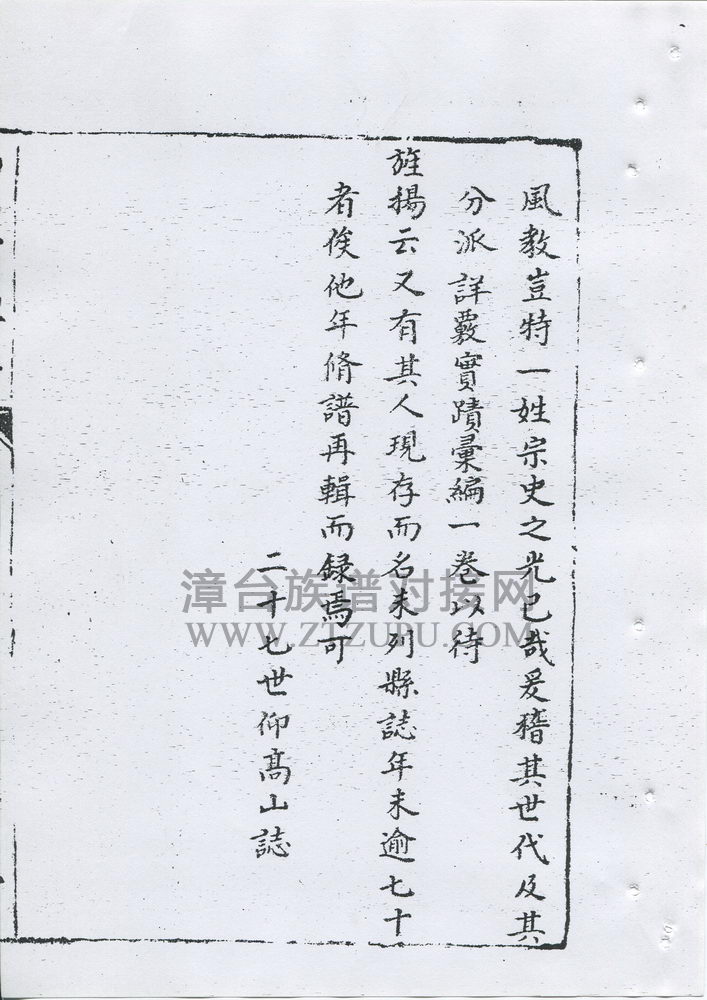 風教豈特一姓宗史之光已哉爰稽其世代及其
分派詳覈實蹟彙編一卷以待
旌揚云又有其人現存而名未列縣誌年未逾七十
者俟他年脩譜再輯而録焉可
二十七世仰高山誌
漳台族谱对接网
WWW.ZTZUPU.COM